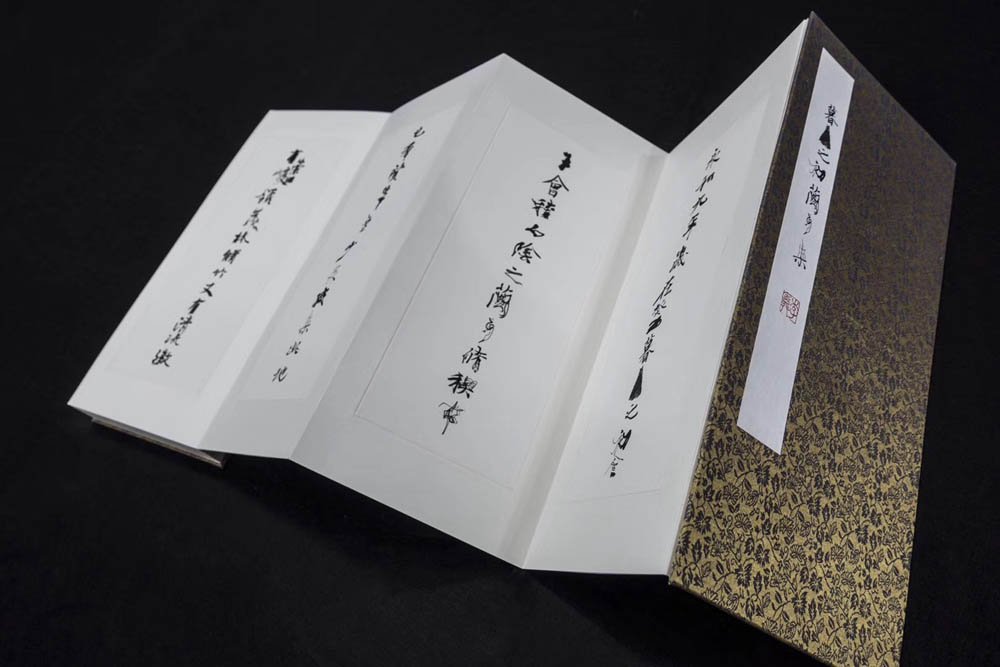 暮春之初蘭亭集
永和九年歲在癸丑暮春之初會
于會稽山陰之蘭亭脩稧事
也群賢畢至少長咸集此地
有崇山峻領茂林脩竹又有清流激